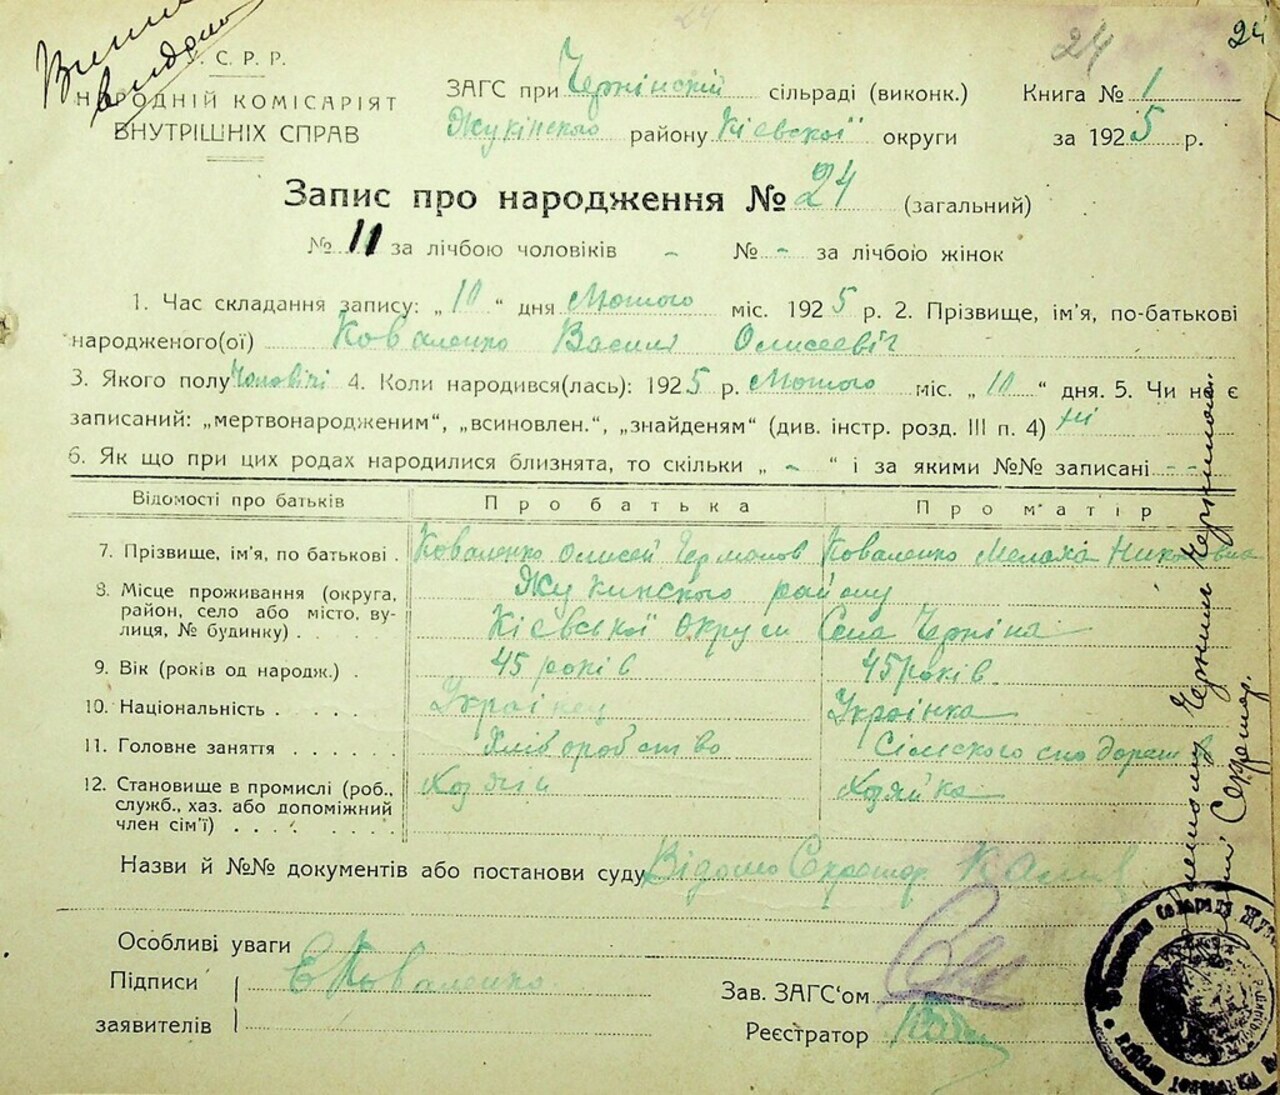 24
24
У. С. Р. Р.
НАРОДНІЙ КОМІСАРІЯТ
ВНУТРІШНІХ СПРАВ
ЗАГС при Чернінскій сільраді (виконк.)
Жукінского району Кієвскоії округи
Книга № 1
за 1925 р.
Запис про народження № 24 (загальний)
№ 11 за лічбою чоловіків - № - за лічбою жінок
1. Час складання запису: „ 10 “ дня Лютого міс. 1925 р. 2. Прізвище, ім'я, по-батькові
народженого(ої) Коваленко Василь Олисеевіч
3. Якого полу Чоловічі 4. Коли народився(лась): 1925 р. Лютого міс. „ 10 “ дня. 5. Чи не є
записаний: „мертвонародженим“, „всиновлен.“, „знайденям“ (див. інстр. розд. III п. 4) Ні
6. Як що при цих родах народилися близнята, то скільки „ - “ і за якими №№ записані - -
Відомості про батьків Про батька Про м'атір
7. Прізвище, ім'я, по батькові . Коваленко Олисей Коваленко Мелаха
8. Місце проживання (округа, Жукинского району
район, село або місто, ву-
лиця, № будинку) . . . . . Кієвської округи Села Черніна
9. Вік (років од народж.) . 45 років 45 років
10. Національність . . . . . Українец Українка
11. Головне заняття . . . . . . Хліборобство Сілского
12. Становище в промислі (роб., Хозяїн Хозяйка
служб., хаз. або допоміжний
член сім'ї) . . . . . . . .
Назви й №№ документів або постанови суду Відомо Секретар
Особливі уваги
Підписи Є Коваленко
заявителів
Зав. ЗАГС'ом
Реєстратор